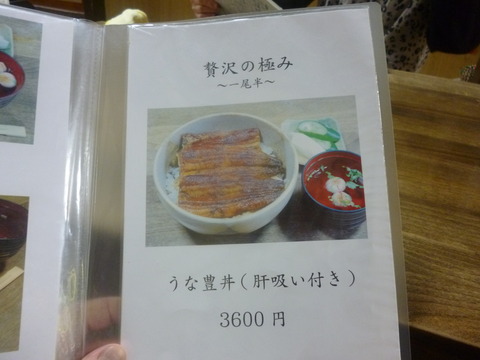 贅沢の極み
～一尾半～
うな豊丼(肝吸い付き)
3600円